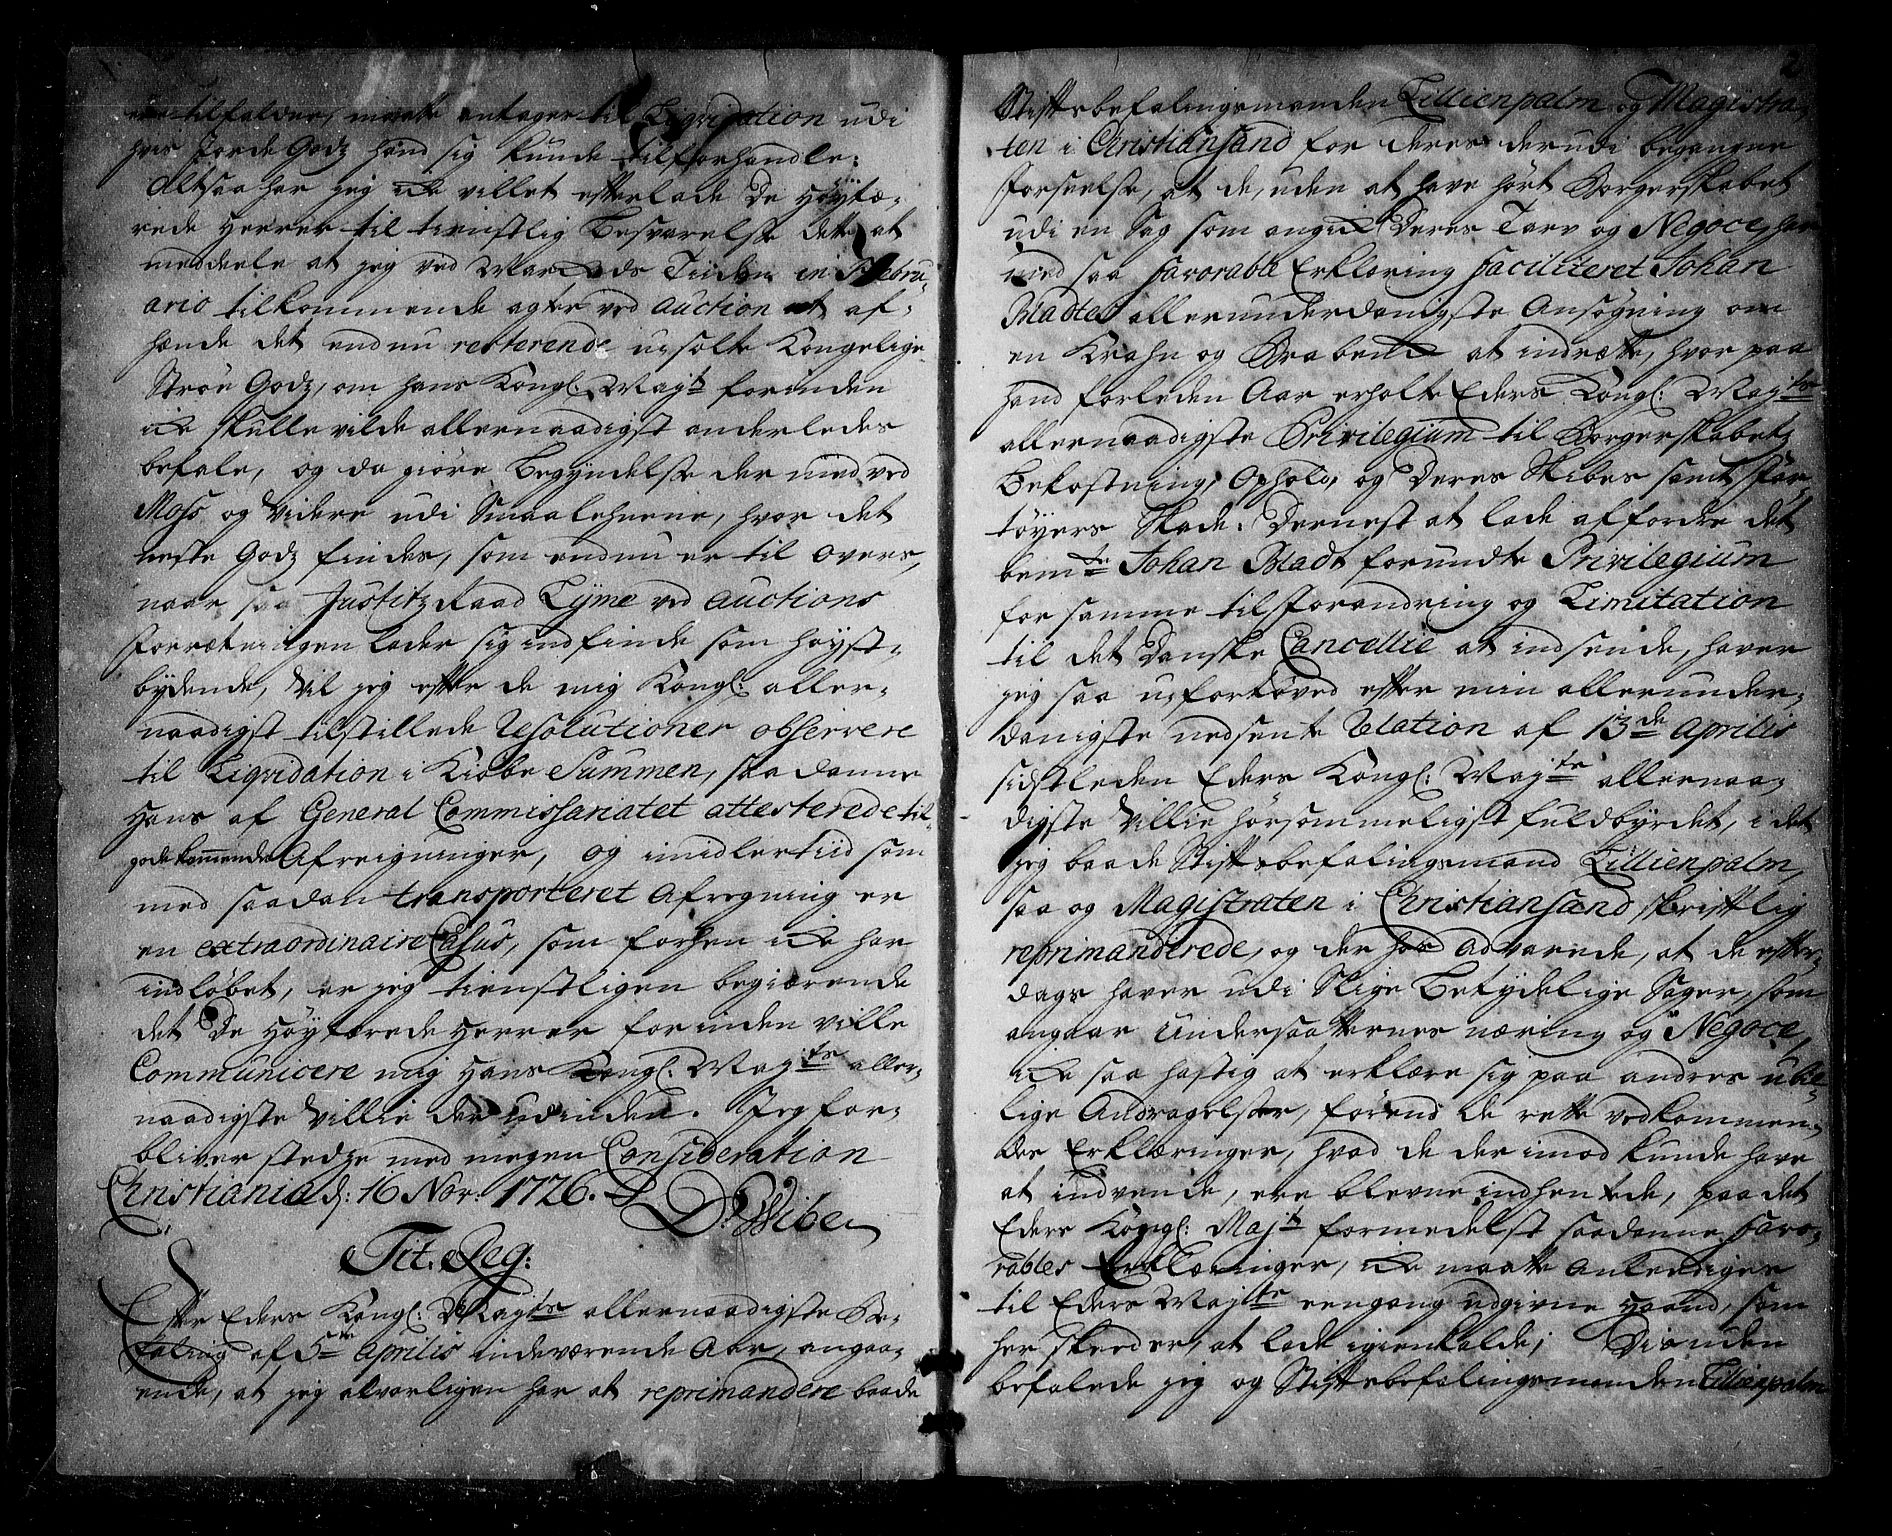 ere tilfalden, maatte antages til Liqvidation udi
hvis Jorde Godz hand sig kunde tilforhandle:
Altsaa har jeg icke villet efterlade De Høyfæ,,
rede Herrer til tienstlig Besvarelse dette at
meddeele at jeg ved Marckeds Tiiden in Febru,,
ario tilkommende agter ved auction at af,
hænde det endnu resterende usolte Kongelige
Strøe Godz, om hans Kongl: Mayts forinden
icke skulle vilde allernaadigst anderledes
befale, og da giøre Begyndelse der med ved
Moss og videre udi Smaalehnene, hvor det
meste Godz findes, som endnu er til overs,
naar saa Justitz Raad Tyme ved auctions
Forrætningen lader sig indfinde som høyst,
bydende, vil jeg efter de mig Kongl: aller,
naadigst tilstillede Resolutioner observere
til Liqvidation i Kiøbe Summen, saadanne
Hans af General Commissariatet attesterede til,
godekommende Afreigninger, og imidlertiid som
med saadan transporteret Afregning er
en extraordinaire Casus, som forhen icke har
indløbet, er jeg tienstligen begiærende
det De Høyfærede Herrer forinden ville
Communicere mig Hans Kongl: Mayts aller,
naadigste Villie der udinden. Jeg for,
bliver stedze med megen Consideration
Christiania d: 16 Nov: 1726.
D Wibe
Tit. Reg:
Efter Eders Kongl: Mayts allernaadigste Be,
faling af 5te Aprilis indeværende Aar, angaa,
ende, at jeg alvorligen har at reprimandere baade
2
Stiftsbefalingsmanden Lillienpalm og Magistra,
ten i Christiansand for deres derudi begangne
Forseelse, at de, uden at have hørt Borgerskabet
udi en Sag som angick Deres Tarv og Negoce, har
med saa favorable Erklæring faciliteret Johan
Bladtes allerunderdanigste Ansøgning om
en Krahn og Brabenck at indrætte, hvor paa
hand forleden Aar erholte Eders Kongl: Mayts
allernaadigste Privilegium til Borgerskabets
Bekostning, Ophold, og Deres Skibes samt Far,
tøyers Skade. Dernest at lade affordre det
bemte Johan Bladt forundte Privilegium
for samme til Forandring og Limitation
til det Danske Cancellie at indsende, haver
jeg saa uforbøved efter min allerunder,
danigste nedsente Relation af 13de Aprilis
sidstleden Eders Kongl: Mayts allernaa,
digste Villie hørsommeligst fuldbyrdet, i det
jeg baade Stiftsbefalingsmand Lillienpalm,
saa og Magistraten i Christiansand skriftlig
reprimanderede, og der hos advarede, at de efter,
dags haver udi Slige Betydelige Sager, som
angaar Undersaatternes næring og Negoce,
icke saa hastig at erklære sig paa andres ubil,
lige Andragelser, førend de rette vedkommen,
des Erklæringer, hvad de der imod kunde have
at indvende, ere blevne indhentede, paa det
Eders Kongl: Majts formedelst saadanne favo,
rables Erklæringer, icke maatte anlediges
til Eders Mayts eengang udgivne Haand, som
her skeed er, at lade igienkalde; Dis uden
befalede jeg og Stiftsbefalingsmanden Lillienpalm